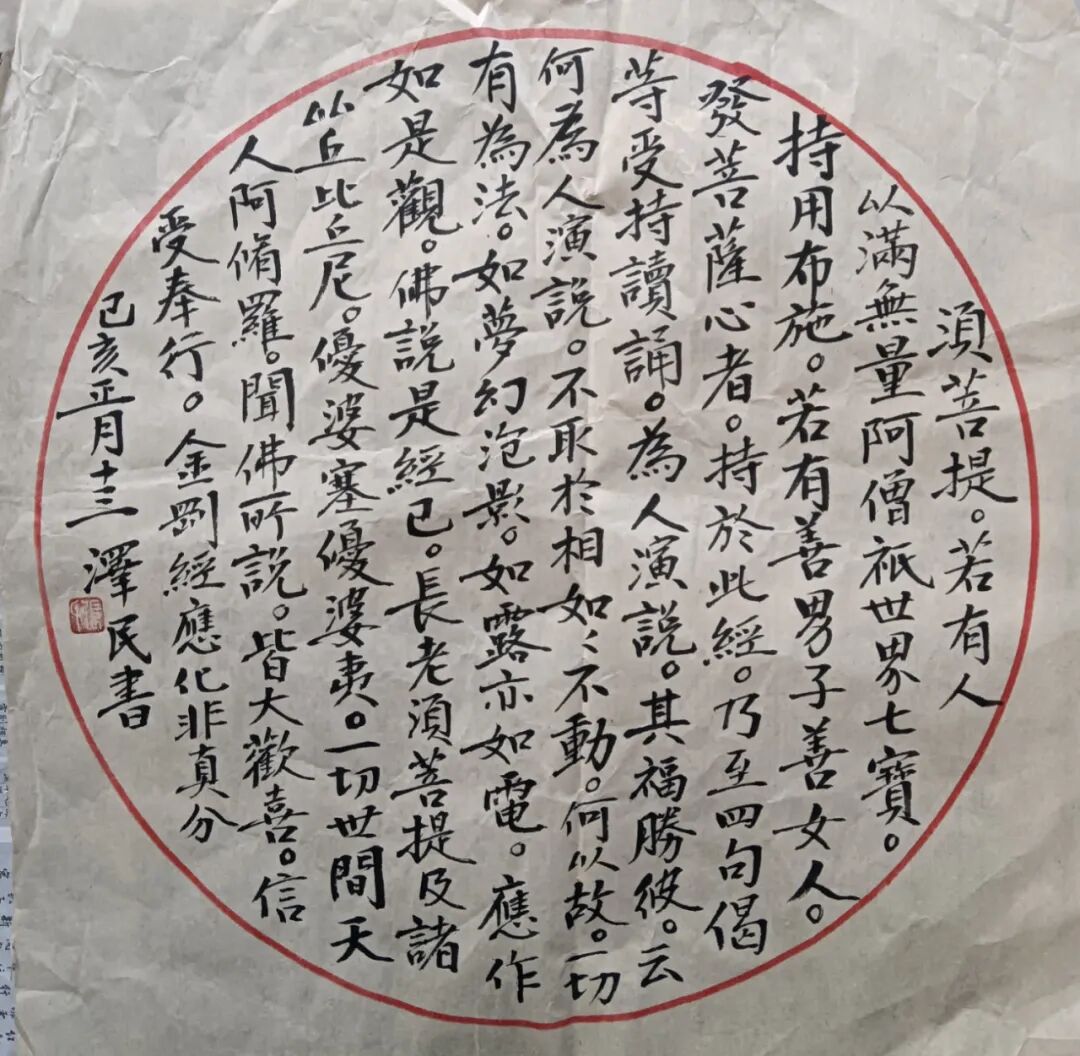 須菩提。若有人
以滿無量阿僧祇世界七寶。
持用布施。若有善男子善女人。
發菩薩心者。持於此經。乃至四句偈
等受持讀誦。為人演説。其福勝彼。云
何為人演説。不取於相如〻不動。何以故。一切
有為法。如夢幻泡影。如露亦如電。應作
如是觀。佛説是經已。長老須菩提及諸
比丘比丘尼。優婆塞優婆夷。一切世間天
人阿脩羅。聞佛所説。皆大歡喜。信
受奉行。金剛經應化非真分
己亥正月十三 澤民書